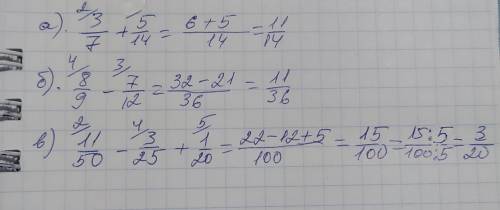 а). ²⁄3/7 + ¹⁄5/14 = (6+5)/14 = 11/14
б). ⁴⁄8/9 - ³⁄7/12 = (32-21)/36 = 11/36
в) ²⁄11/50 - ⁴⁄3/25 + ⁵⁄1/20 = (22-12+5)/100 = 15/100 = (15:5)/(100:5) = 3/20